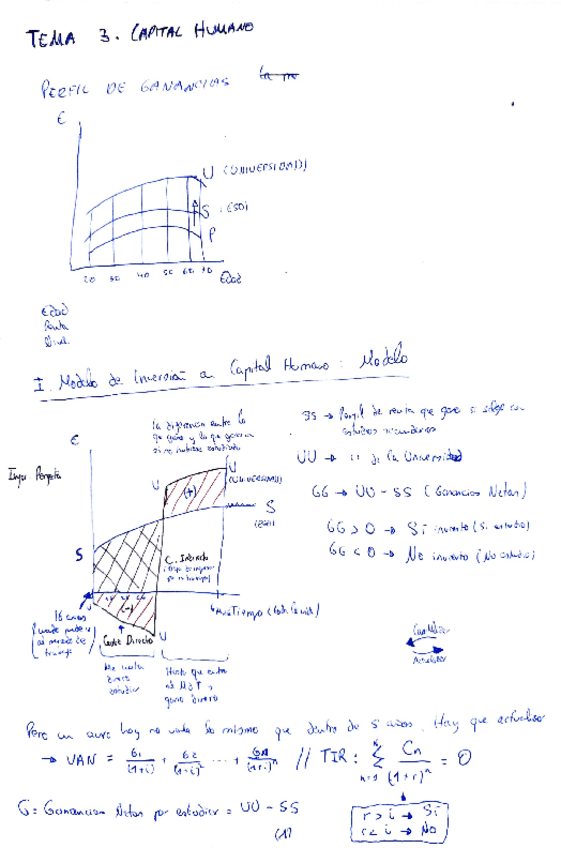 TEMA 3. CAPITAL HUMANO
PERFIL DE GANANCIAS
€
U (UNIVERSIDAD)
S (ESO)
P
20 30 40 50 60 70 Edad
Edad
Renta
Nivel
I. Modelo de inversión en Capital Humano: Modelo
la diferencia entre lo
que gano y lo que ganaria
si no hubiese estudiado
€
U U
(UNIVERSIDAD)
(+)
S
(ESO)
S
C. Indirecto
16 años
(-)
Tiempo (toda la vida)
Coste Directo
U
Me cuesta
dinero
estudiar
Hasta que entro
al MdT y
gano dinero
SS → Perfil de renta que gano si sigo con
estudios secundarios
UU → " " la Universidad
GG → UU - SS (Ganancias Netas)
GG > 0 → Si invierto (Si estudio)
GG < 0 → No invierto (No estudio)
Capitalizar
Actualizar
Pero un euro hoy no vale lo mismo que dentro de 5 años. Hay que actualizar
→ VAN = G1/(1+i) + G2/(1+i)² ... + Gn/(1+i)ⁿ // TIR: Σ Cn/(1+r)ⁿ = 0
n=1
G = Ganancias Netas por estudiar = UU - SS
r > i → Si
r < i → No
(1)